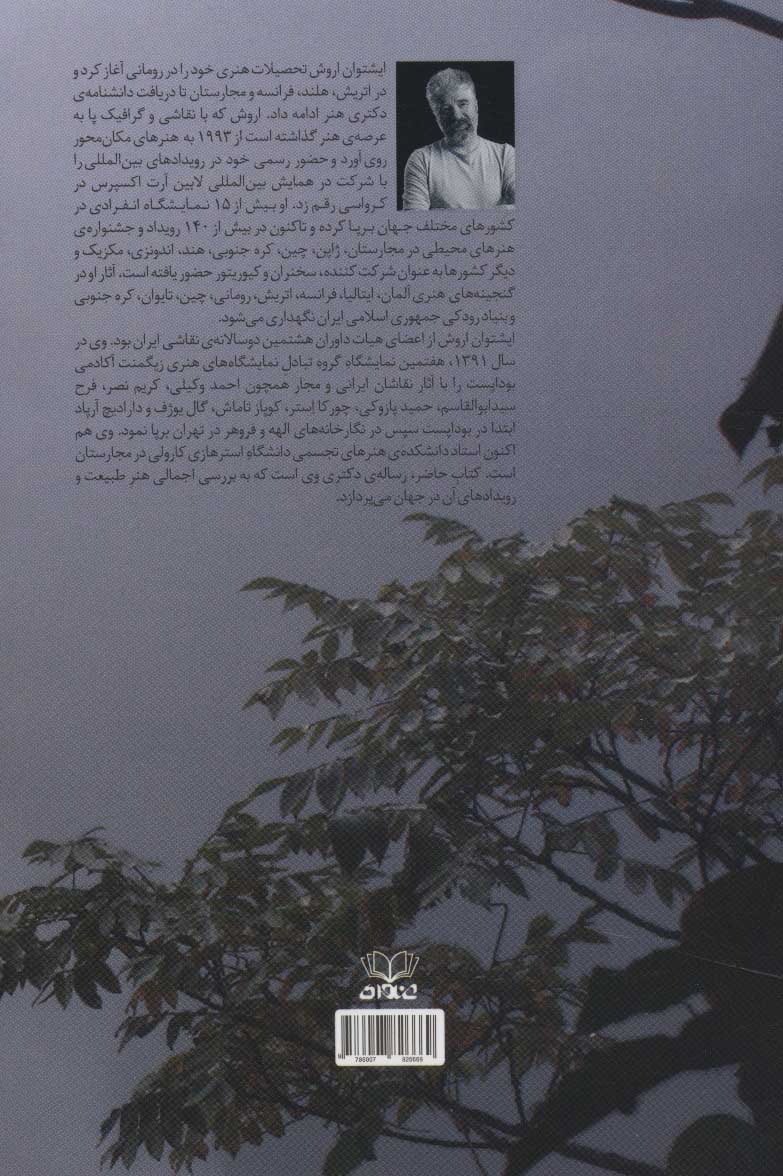 ایشتوان اروش تحصیلات هنری خود را در رومانی آغاز کرد و
در اتریش، هلند، فرانسه و مجارستان تا دریافت دانشنامه‌ی
دکتری هنر ادامه داد. اروش که با نقاشی و گرافیک پا به
عرصه‌ی هنر گذاشته است از ۱۹۹۳ به هنرهای مکان‌محور
روی آورد و حضور رسمی خود در رویدادهای بین‌المللی را
با شرکت در همایش بین‌المللی لابین آرت اکسپرس در
کرواسی رقم زد. او بیش از ۱۵ نمایشگاه انفرادی در
کشورهای مختلف جهان برپا کرده و تاکنون در بیش از ۱۴۰ رویداد و جشنواره‌ی
هنرهای محیطی در مجارستان، ژاپن، چین، کره جنوبی، هند، اندونزی، مکزیک و
دیگر کشورها به عنوان شرکت کننده، سخنران و کیوریتور حضور یافته است. آثار او در
گنجینه‌های هنری آلمان، ایتالیا، فرانسه، اتریش، رومانی، چین، تایوان، کره جنوبی
و بنیاد رودکی جمهوری اسلامی ایران نگهداری می‌شود.
ایشتوان اروش از اعضای هیات داوران هشتمین دوسالانه‌ی نقاشی ایران بود. وی در
سال ۱۳۹۱، هفتمین نمایشگاه گروه تبادل نمایشگاه‌های هنری زیگمنت آکادمی
بوداپست را با آثار نقاشان ایرانی و مجار همچون احمد وکیلی، کریم نصر، فرح
سیدابوالقاسم، حمید پازوکی، چورکا اِستر، کوپاز تاماش، گال یوژف و دارادیچ آرپاد
ابتدا در بوداپست سپس در نگارخانه‌های الهه و فروهر در تهران برپا نمود. وی هم
اکنون استاد دانشکده‌ی هنرهای تجسمی دانشگاه استرهازی کارولی در مجارستان
است. کتاب حاضر، رساله‌ی دکتری وی است که به بررسی اجمالی هنر طبیعت و
رویدادهای آن در جهان می‌پردازد.